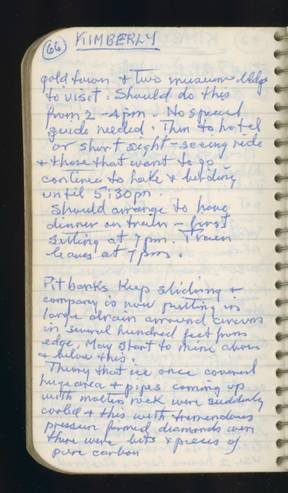 66 KIMBERLY
gold town & two museum bldgs
to visit. Should do this
from 2-4pm. No special
guide needed. Then to hotel
or short sight-seeing ride
& those that want to go
continue to lake & birding
until 5:30pm.
Should arrange to have
dinner on train - first
sitting at 7pm. Train
leaves at 7pm.
Pit banks keep sliding &
company is now putting in
large drain around circum
in several hundred feet from
edge. May start to mine above
& below this.
Theory that ice once covered
huge area & pipes coming up
with molten rock were suddenly
cooled & this with tremendous
pressure formed diamonds when
there were bits & pieces of
pure carbon